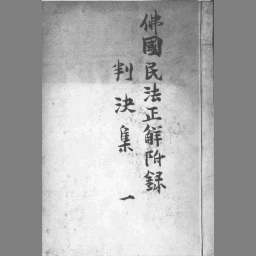 佛國民法正解附録
判決集 一